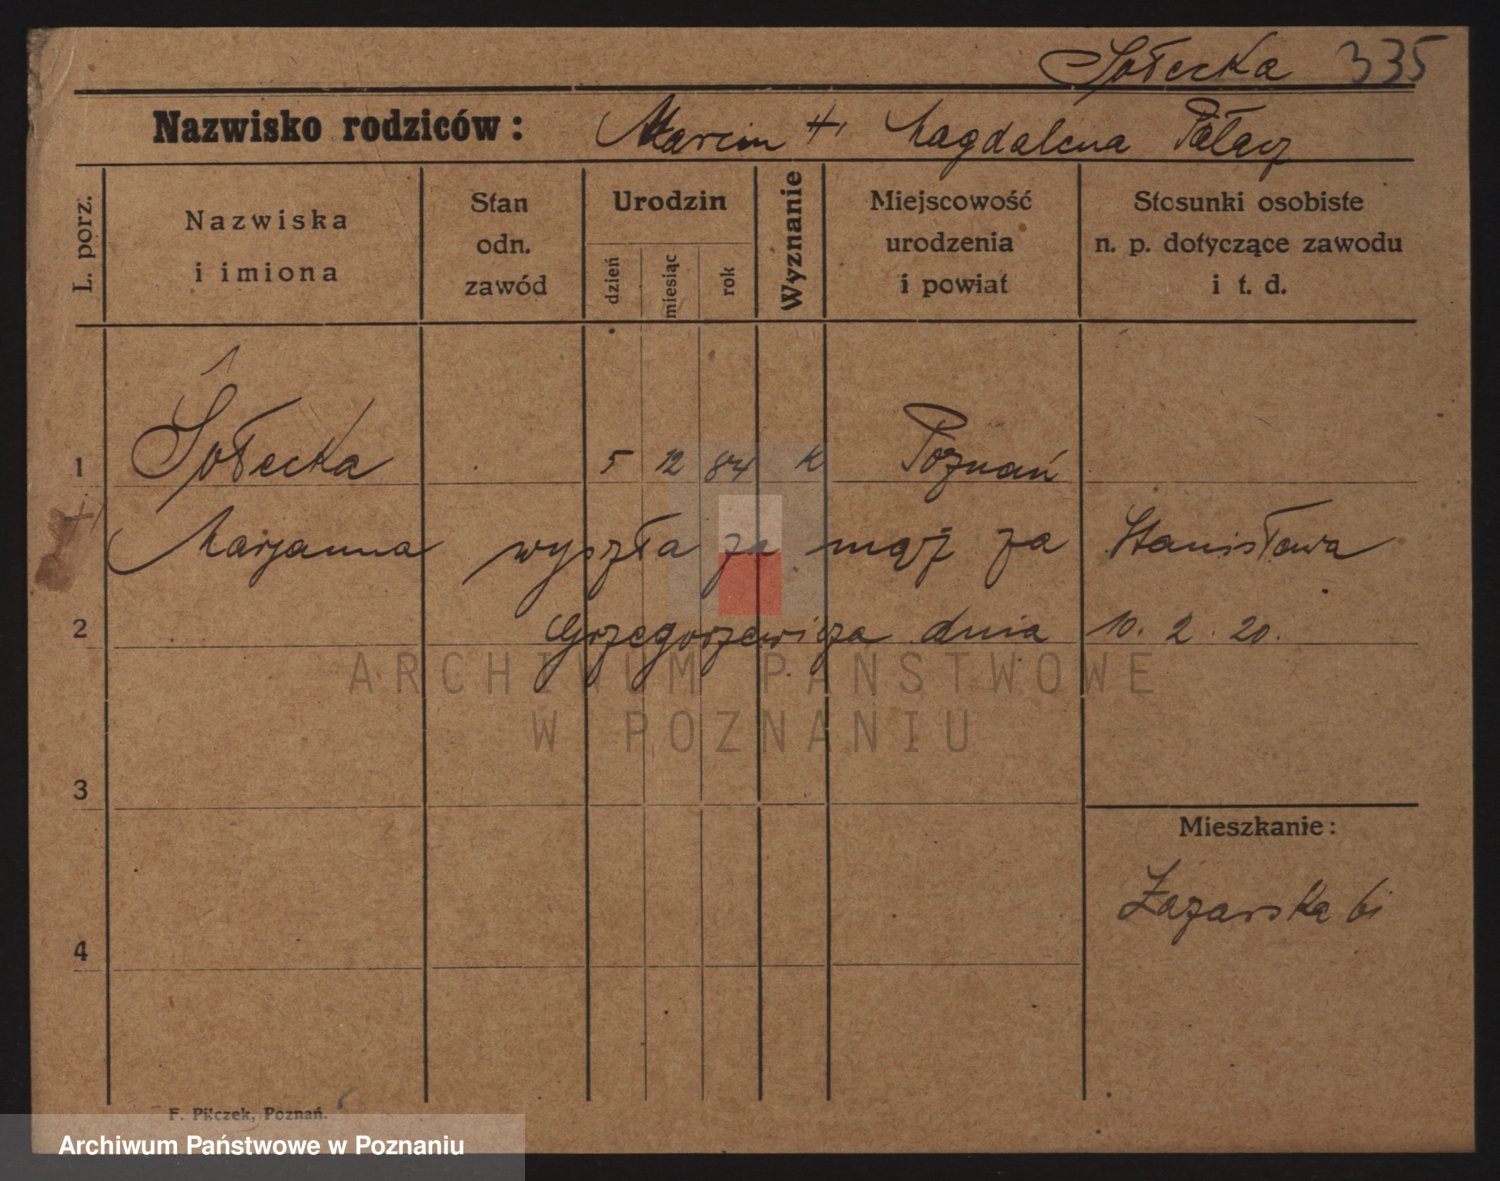 Sołecka 335
Nazwisko rodziców: Marcin + Magdalena Pałacz
L. porz.
Nazwiska
i imiona
Stan
odn.
zawód
Urodzin
dzień
miesiąc
rok
Wyznanie
Miejscowość
urodzenia
i powiat
Stosunki osobiste
n. p. dotyczące zawodu
i t. d.
1 Sołecka 5 12 84 K Poznań
Marjanna wyszła za mąż za Stanisława
2 Grzegorzewicza dnia 10. 2. 20.
ARCHIWUM PAŃSTWOWE
W POZNANIU
3
Mieszkanie:
Łazarska 6
4
F. Pilczek, Poznań.
Archiwum Państwowe w Poznaniu